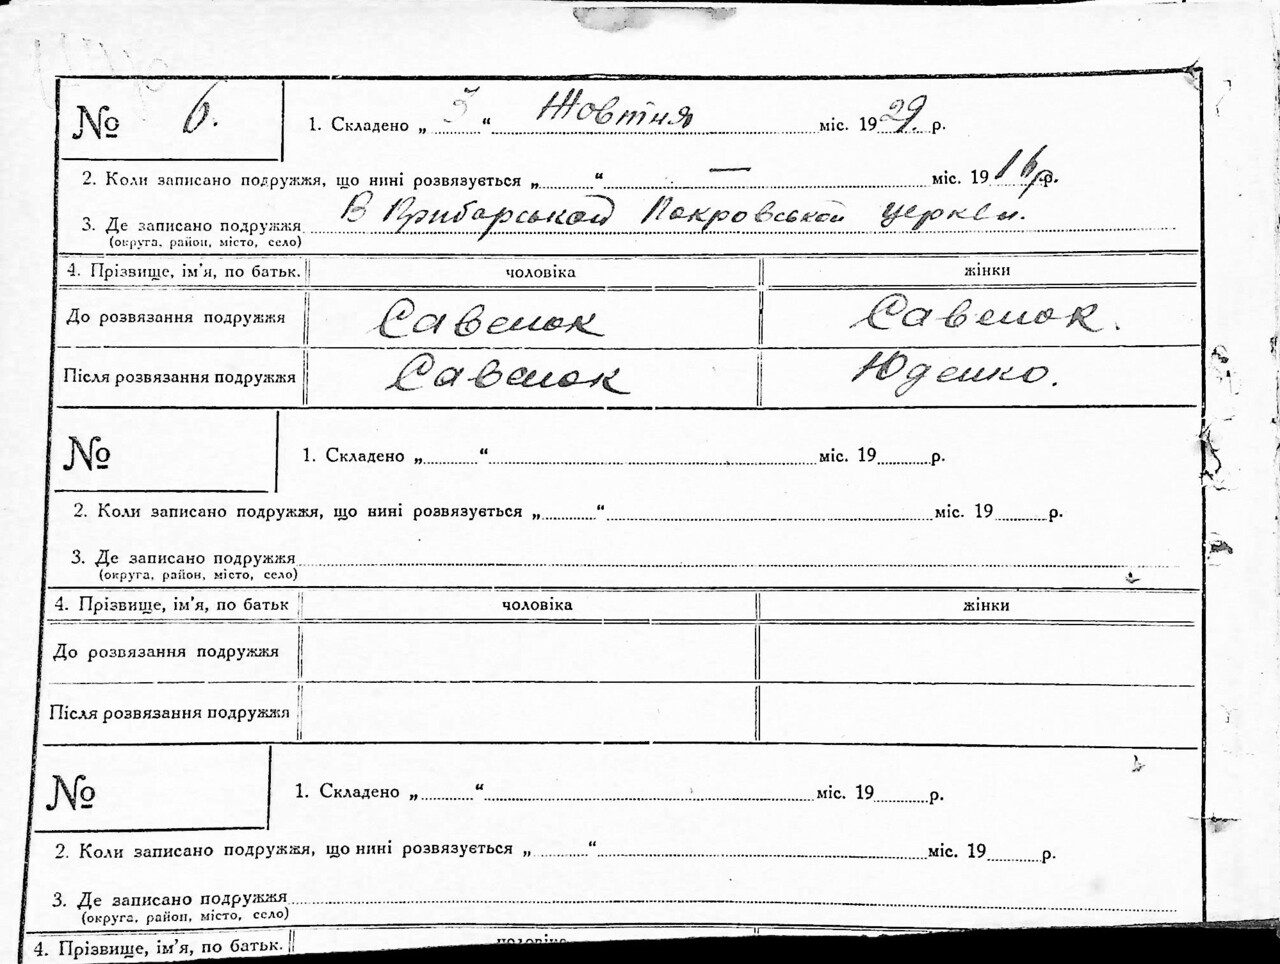 № 6. 1. Складено „ 5 “ Жовтня міс. 1929. р.
2. Коли записано подружжя, що нині розвязується „ “ — міс. 1916 р.
3. Де записано подружжя В Прибарській Покровській церкві.
(округа, район, місто, село)
4. Прізвище, ім’я, по батьк. чоловіка жінки
До розвязання подружжя Савенок Савенок.
Після розвязання подружжя Савенок Юденко.
№ 1. Складено „ “ міс. 19 р.
2. Коли записано подружжя, що нині розвязується „ “ міс. 19 р.
3. Де записано подружжя
(округа, район, місто, село)
4. Прізвище, ім’я, по батьк чоловіка жінки
До розвязання подружжя
Після розвязання подружжя
№ 1. Складено „ “ міс. 19 р.
2. Коли записано подружжя, що нині розвязується „ “ міс. 19 р.
3. Де записано подружжя
(округа, район, місто, село)
4. Прізвище, ім’я, по батьк. чоловіка